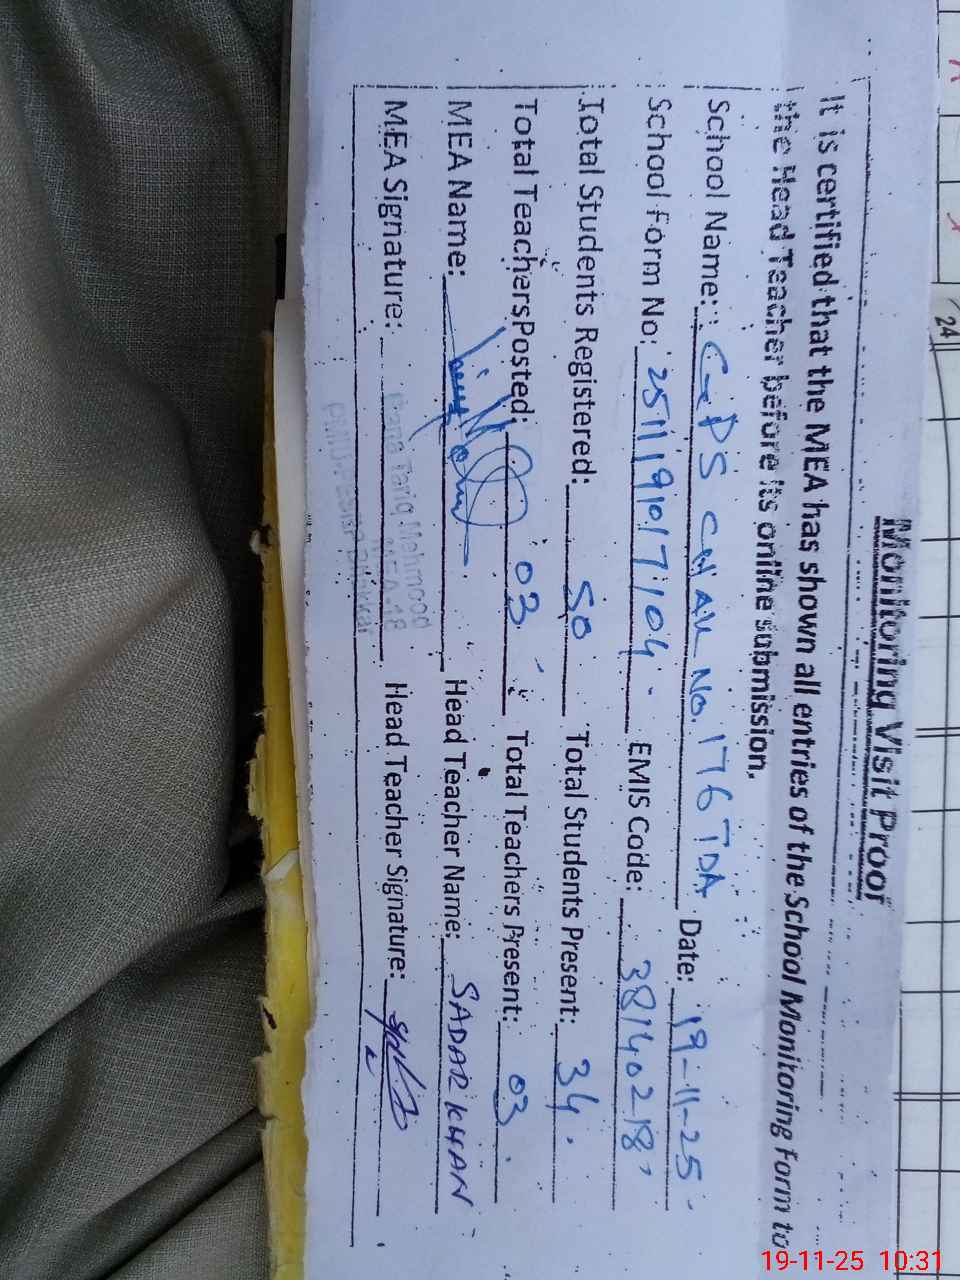 24
Monitoring Visit Proof
It is certified that the MEA has shown all entries of the School Monitoring Form to
the Head Teacher before its online submission.
School Name: GPS CHAK No. 176 TDA Date: 19-11-25
School Form No: 2511191017104 EMIS Code: 38140218
Total Students Registered: 50 Total Students Present: 34
Total Teachers Posted: 03 Total Teachers Present: 03
MEA Name: Head Teacher Name: SADAR KHAN
MEA Signature: Head Teacher Signature:
Rana Tariq Mehmood
MEA-18
Bhakkar
19-11-25 10:31